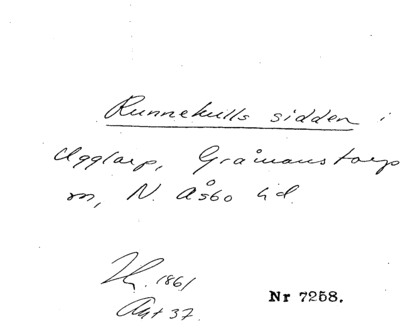 Runnekulls sidden i
Agglarp, Gråmanstorps
sn, N. Åsbo hd.
1861
Akt 37.
Nr 7258.